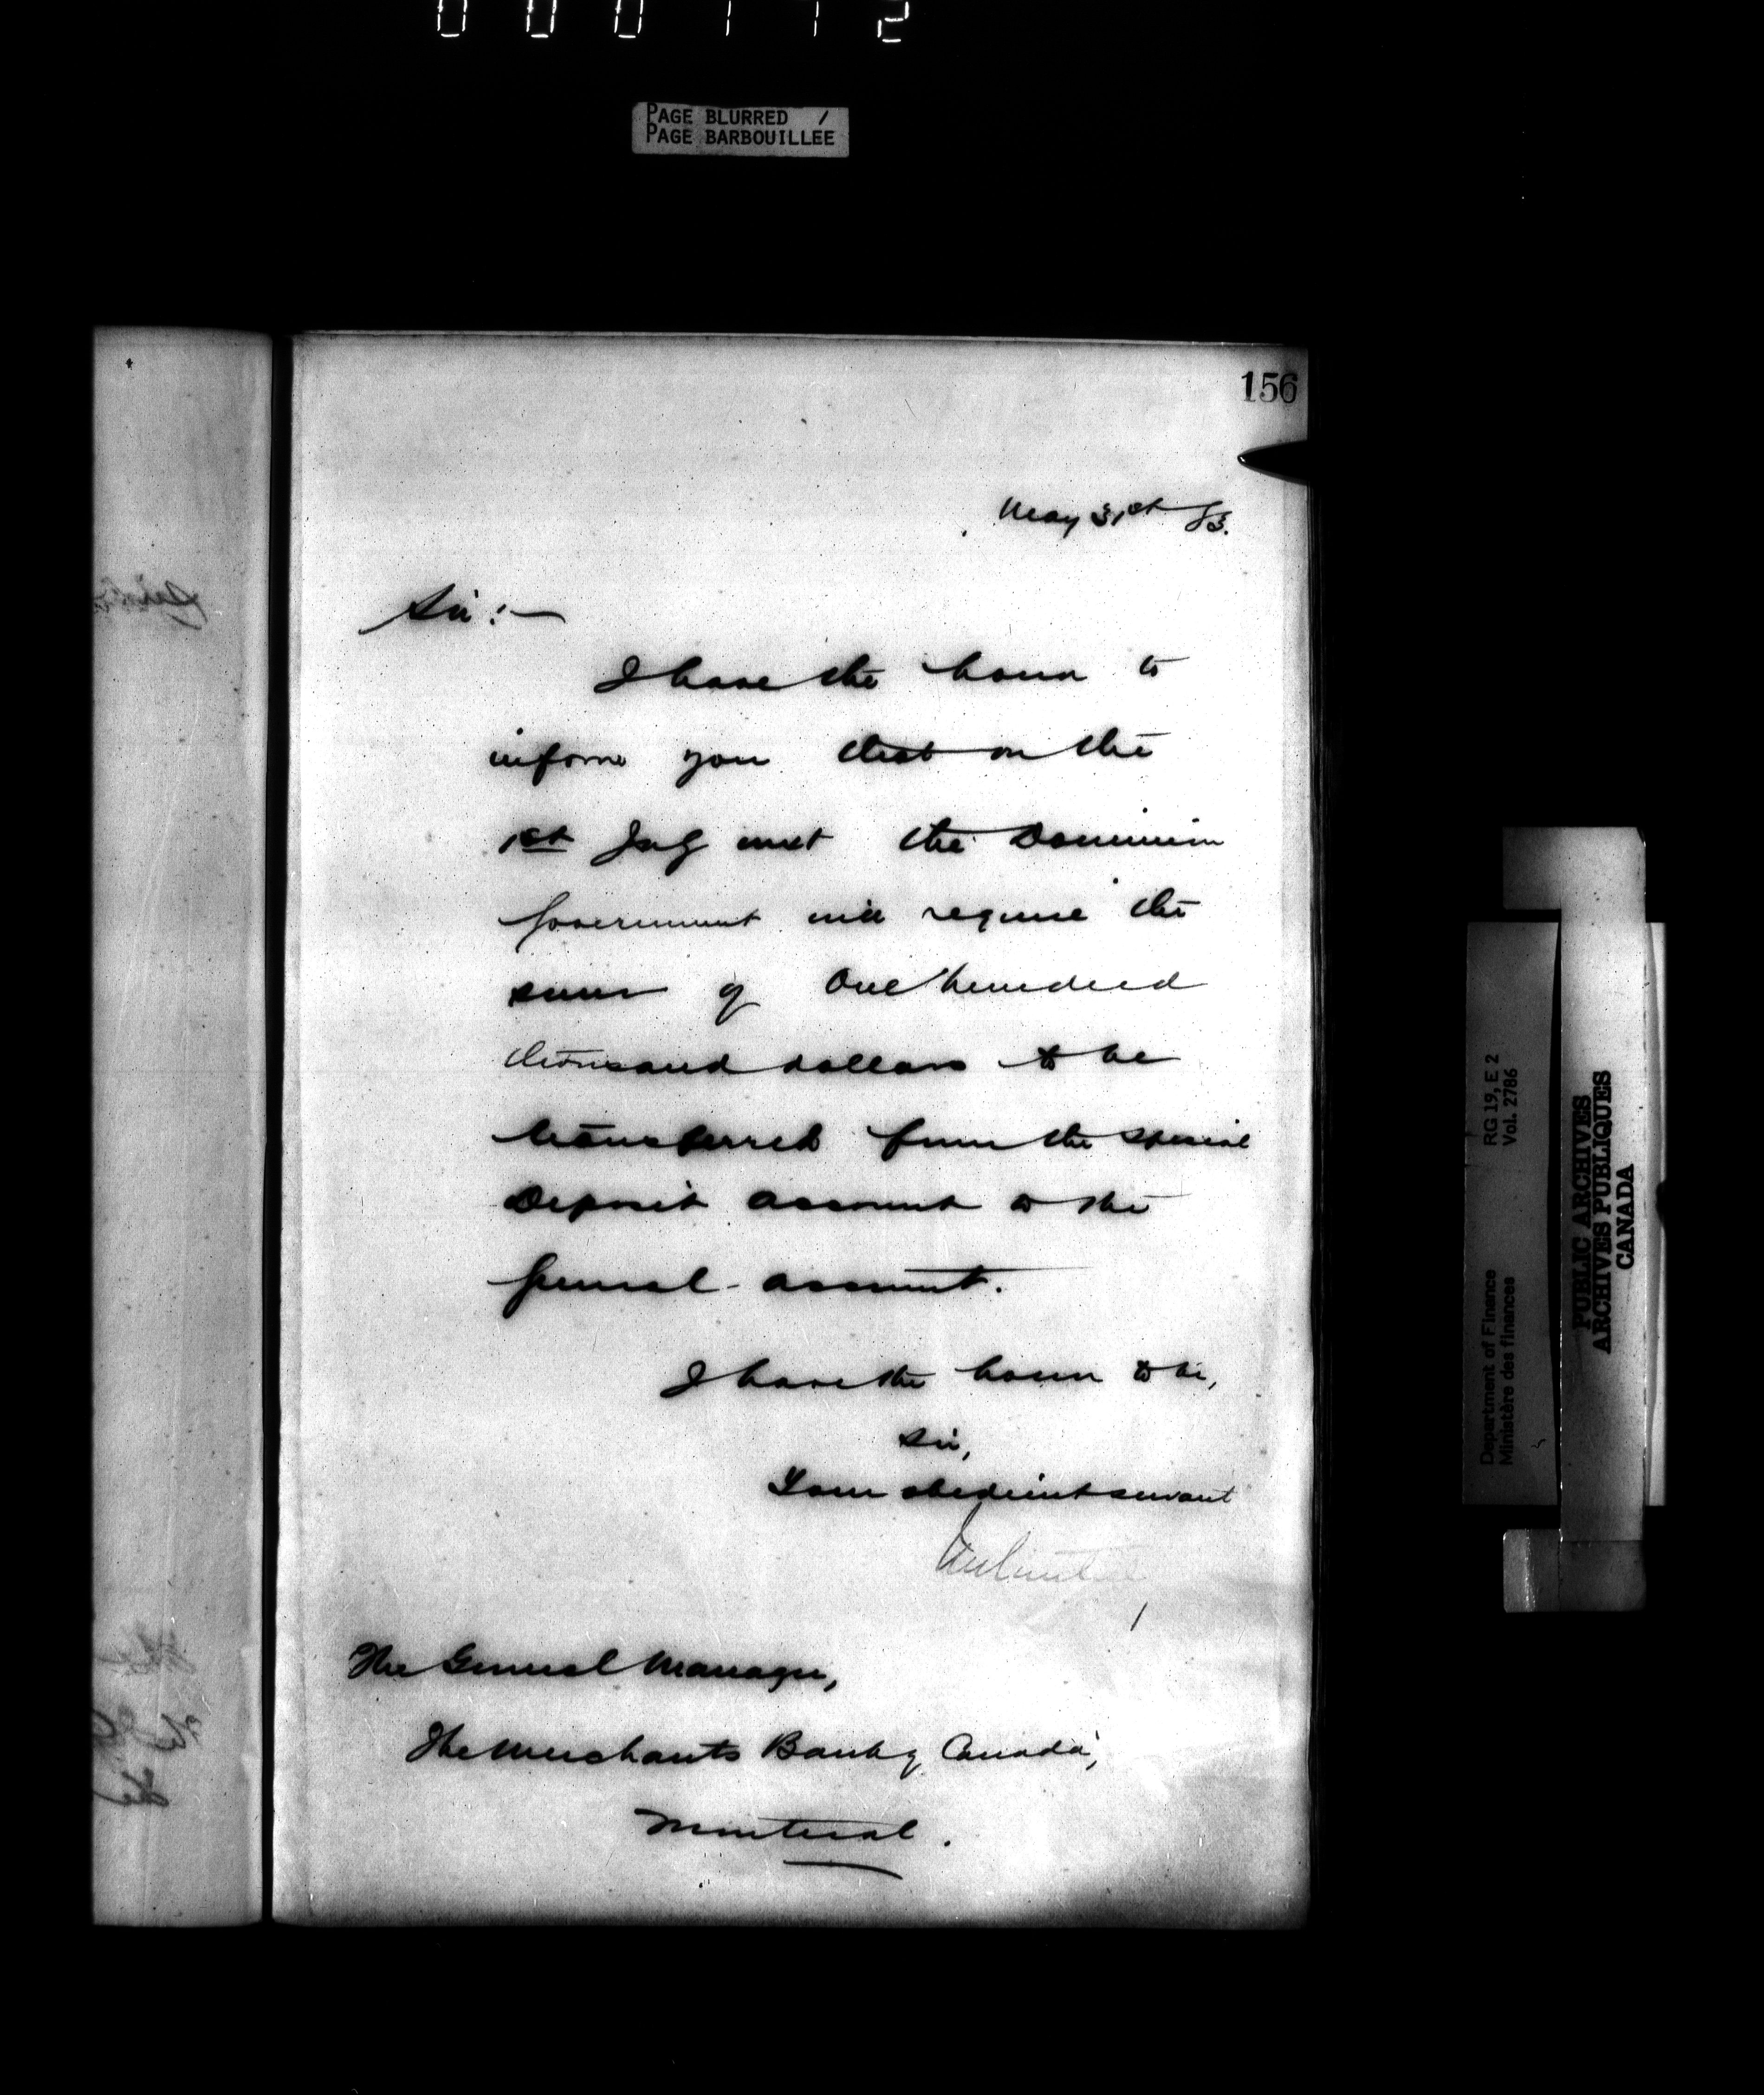 PAGE BLURRED /
PAGE BARBOUILLEE
156
May 31st 83.
Sir:—
I have the honor to
inform you that on the
1st July next the Dominion
Government will require the
sum of One hundred
thousand dollars to be
transferred from the special
Deposit account to the
general account.
I have the honor to be,
Sir,
Your obedient servant
The General Manager,
The Merchants Bank of Canada,
Montreal.
Department of Finance RG 19, E 2
Ministère des finances Vol. 2786
PUBLIC ARCHIVES
ARCHIVES PUBLIQUES
CANADA